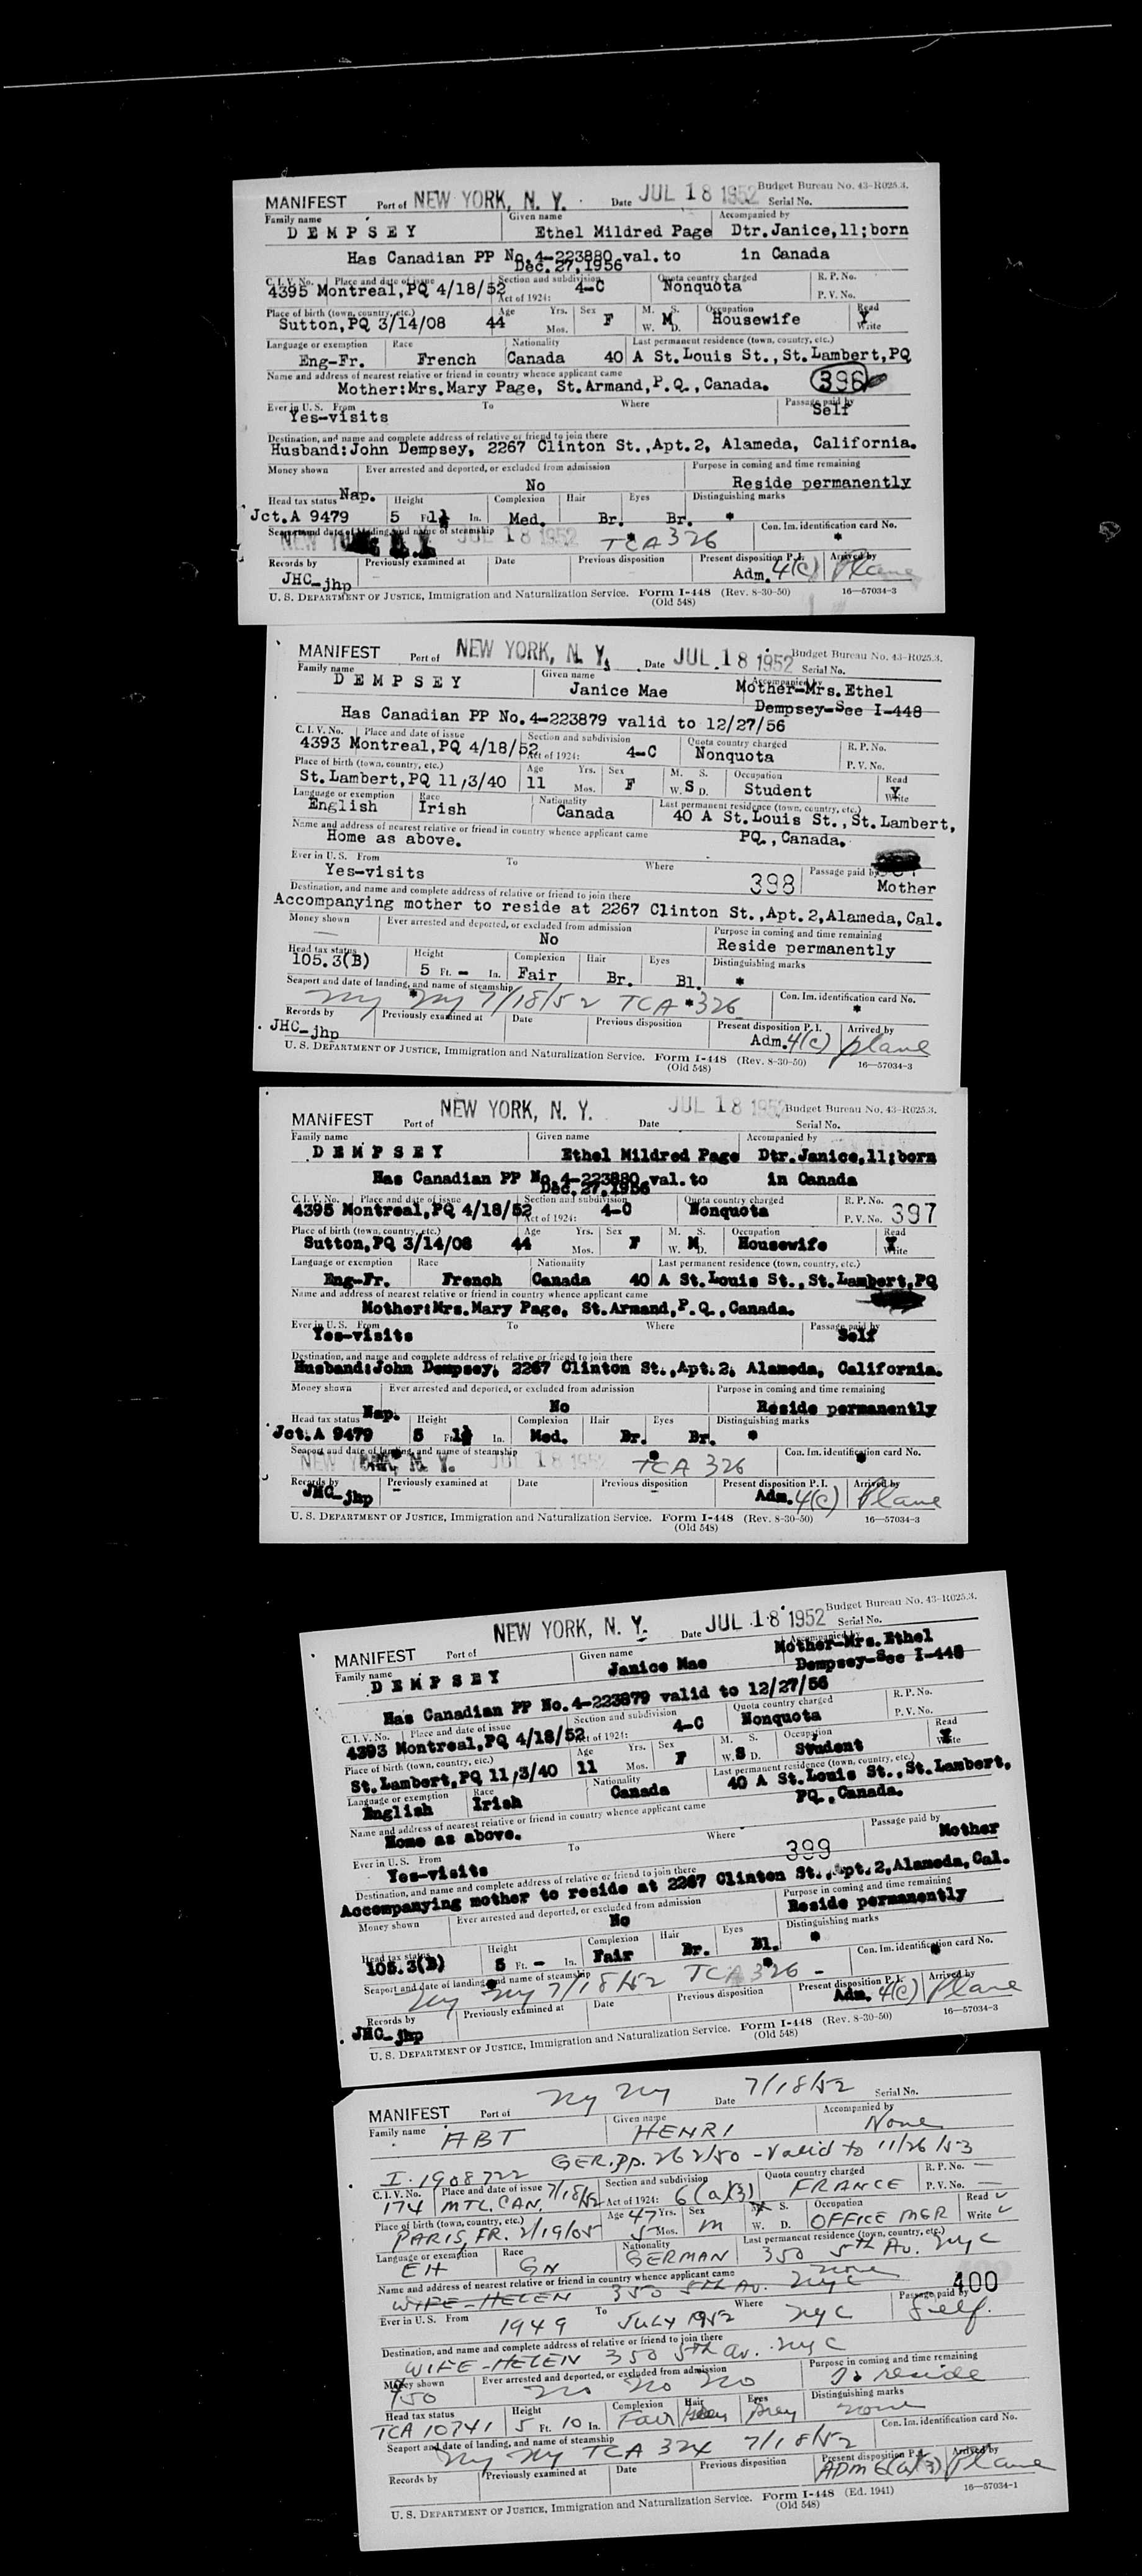 MANIFEST Port of NEW YORK, N. Y. Date JUL 18 1952 Budget Bureau No. 43-R025.3. Serial No.
Family name Given name Accompanied by
DEMPSEY Ethel Mildred Page Dtr.Janice,11;born
Has Canadian PP No.4-223880 val. to in Canada
Dec.27,1956
C. I. V. No. Place and date of issue Section and subdivision Quota country charged R. P. No.
4395 Montreal,PQ 4/18/52 Act of 1924: 4-C Nonquota P. V. No.
Place of birth (town, country, etc.) Age Yrs. Sex M. S. Occupation Read
Sutton,PQ 3/14/08 44 Mos. F W. M D. Housewife Y Write
Language or exemption Race Nationality Last permanent residence (town, country, etc.)
Eng-Fr. French Canada 40 A St.Louis St.,St.Lambert,PQ
Name and address of nearest relative or friend in country whence applicant came
Mother:Mrs.Mary Page, St.Armand,P.Q.,Canada. 396
Ever in U. S. From To Where Passage paid by
Yes-visits Self
Destination, and name and complete address of relative or friend to join there
Husband:John Dempsey, 2267 Clinton St.,Apt.2, Alameda, California.
Money shown Ever arrested and deported, or excluded from admission Purpose in coming and time remaining
No Reside permanently
Head tax status Nap. Height Complexion Hair Eyes Distinguishing marks
Jct.A 9479 5 Ft. In. Med. Br. Br. *
Seaport and date of landing, and name of steamship Con. Im. identification card No.
NEW YORK, N. Y. JUL 18 1952 TCA 326 *
Records by Previously examined at Date Previous disposition Present disposition P. I. Arrived by
JHC-jhp Adm. 4(c) Plane
U. S. DEPARTMENT OF JUSTICE, Immigration and Naturalization Service. Form I-448 (Rev. 8-30-50) 16—57034-3
(Old 548)
MANIFEST Port of NEW YORK, N. Y. Date JUL 18 1952 Budget Bureau No. 43-R025.3. Serial No.
Family name Given name Accompanied by
DEMPSEY Janice Mae Mother-Mrs.Ethel
Dempsey-See I-448
Has Canadian PP No.4-223879 valid to 12/27/56
C. I. V. No. Place and date of issue Section and subdivision Quota country charged R. P. No.
4393 Montreal,PQ 4/18/52 Act of 1924: 4-C Nonquota P. V. No.
Place of birth (town, country, etc.) Age Yrs. Sex M. S. Occupation Read
St.Lambert,PQ 11/3/40 11 Mos. F W. S D. Student Y Write
Language or exemption Race Nationality Last permanent residence (town, country, etc.)
English Irish Canada 40 A St.Louis St.,St.Lambert,
Name and address of nearest relative or friend in country whence applicant came PQ.,Canada.
Home as above.
Ever in U. S. From To Where Passage paid by
Yes-visits 398 Mother
Destination, and name and complete address of relative or friend to join there
Accompanying mother to reside at 2267 Clinton St.,Apt.2,Alameda,Cal.
Money shown Ever arrested and deported, or excluded from admission Purpose in coming and time remaining
— No Reside permanently
Head tax status Height Complexion Hair Eyes Distinguishing marks
105.3(B) 5 Ft. - In. Fair Br. Bl. *
Seaport and date of landing, and name of steamship Con. Im. identification card No.
NY NY 7/18/52 TCA 326 *
Records by Previously examined at Date Previous disposition Present disposition P. I. Arrived by
JHC-jhp Adm. 4(c) plane
U. S. DEPARTMENT OF JUSTICE, Immigration and Naturalization Service. Form I-448 (Rev. 8-30-50) 16—57034-3
(Old 548)
MANIFEST Port of NEW YORK, N. Y. Date JUL 18 1952 Budget Bureau No. 43-R025.3. Serial No.
Family name Given name Accompanied by
DEMPSEY Ethel Mildred Page Dtr.Janice,11;born
Has Canadian PP No.4-223880 val. to in Canada
Dec.27,1956
C. I. V. No. Place and date of issue Section and subdivision Quota country charged R. P. No.
4395 Montreal,PQ 4/18/52 Act of 1924: 4-C Nonquota P. V. No. 397
Place of birth (town, country, etc.) Age Yrs. Sex M. S. Occupation Read
Sutton,PQ 3/14/08 44 Mos. F W. M D. Housewife Y Write
Language or exemption Race Nationality Last permanent residence (town, country, etc.)
Eng-Fr. French Canada 40 A St.Louis St.,St.Lambert,PQ
Name and address of nearest relative or friend in country whence applicant came
Mother:Mrs.Mary Page, St.Armand,P.Q.,Canada.
Ever in U. S. From To Where Passage paid by
Yes-visits Self
Destination, and name and complete address of relative or friend to join there
Husband:John Dempsey, 2267 Clinton St.,Apt.2, Alameda, California.
Money shown Ever arrested and deported, or excluded from admission Purpose in coming and time remaining
No Reside permanently
Head tax status Nap. Height Complexion Hair Eyes Distinguishing marks
Jct.A 9479 5 Ft. In. Med. Br. Br. *
Seaport and date of landing, and name of steamship Con. Im. identification card No.
NEW YORK, N. Y. JUL 18 1952 TCA 326 *
Records by Previously examined at Date Previous disposition Present disposition P. I. Arrived by
JHC-jhp Adm. 4(c) Plane
U. S. DEPARTMENT OF JUSTICE, Immigration and Naturalization Service. Form I-448 (Rev. 8-30-50) 16—57034-3
(Old 548)
MANIFEST Port of NEW YORK, N. Y. Date JUL 18 1952 Budget Bureau No. 43-R025.3. Serial No.
Family name Given name Accompanied by
DEMPSEY Janice Mae Mother-Mrs.Ethel
Dempsey-See I-448
Has Canadian PP No.4-223879 valid to 12/27/56
C. I. V. No. Place and date of issue Section and subdivision Quota country charged R. P. No.
4393 Montreal,PQ 4/18/52 Act of 1924: 4-C Nonquota P. V. No.
Place of birth (town, country, etc.) Age Yrs. Sex M. S. Occupation Read
St.Lambert,PQ 11/3/40 11 Mos. F W. S D. Student Y Write
Language or exemption Race Nationality Last permanent residence (town, country, etc.)
English Irish Canada 40 A St.Louis St.,St.Lambert,
Name and address of nearest relative or friend in country whence applicant came PQ.,Canada.
Home as above.
Ever in U. S. From To Where Passage paid by
Yes-visits 399 Mother
Destination, and name and complete address of relative or friend to join there
Accompanying mother to reside at 2267 Clinton St.,Apt.2,Alameda,Cal.
Money shown Ever arrested and deported, or excluded from admission Purpose in coming and time remaining
No Reside permanently
Head tax status Height Complexion Hair Eyes Distinguishing marks
105.3(B) 5 Ft. - In. Fair Br. Bl. *
Seaport and date of landing, and name of steamship Con. Im. identification card No.
NY NY 7/18/52 TCA 326 - *
Records by Previously examined at Date Previous disposition Present disposition P. I. Arrived by
JHC-jhp Adm. 4(c) Plane
U. S. DEPARTMENT OF JUSTICE, Immigration and Naturalization Service. Form I-448 (Rev. 8-30-50) 16—57034-3
(Old 548)
MANIFEST Port of NY NY Date 7/18/52 Serial No.
Family name Given name Accompanied by
ABT HENRI None
I-1908722 GER.pp. 262/50 - Valid to 11/26/53
C. I. V. No. Place and date of issue Section and subdivision Quota country charged R. P. No. —
174 MTL. CAN. 7/18/52 Act of 1924: 6(a)(3) FRANCE P. V. No. —
Place of birth (town, country, etc.) Age 47 Yrs. Sex M. S. Occupation Read ✓
PARIS, FR. 2/19/05 5 Mos. M W. D. OFFICE MGR Write ✓
Language or exemption Race Nationality Last permanent residence (town, country, etc.)
EH GN GERMAN 350 5th Av. NYC
Name and address of nearest relative or friend in country whence applicant came None
WIFE-HELEN 350 5th Av. NYC 400
Ever in U. S. From To Where Passage paid by
1949 JULY 1952 NYC Self.
Destination, and name and complete address of relative or friend to join there
WIFE-HELEN 350 5th av. NYC
Money shown Ever arrested and deported, or excluded from admission Purpose in coming and time remaining
No No No To reside
Head tax status Height Complexion Hair Eyes Distinguishing marks
TCA 10741 5 Ft. 10 In. Fair Grey none
Seaport and date of landing, and name of steamship Con. Im. identification card No.
NY NY TCA 7/18/52
Records by Previously examined at Date Previous disposition Present disposition P. I. Arrived by
ADM 6(a)(3) Plane
U. S. DEPARTMENT OF JUSTICE, Immigration and Naturalization Service. Form I-448 (Ed. 1941) 16—57034-1
(Old 548)